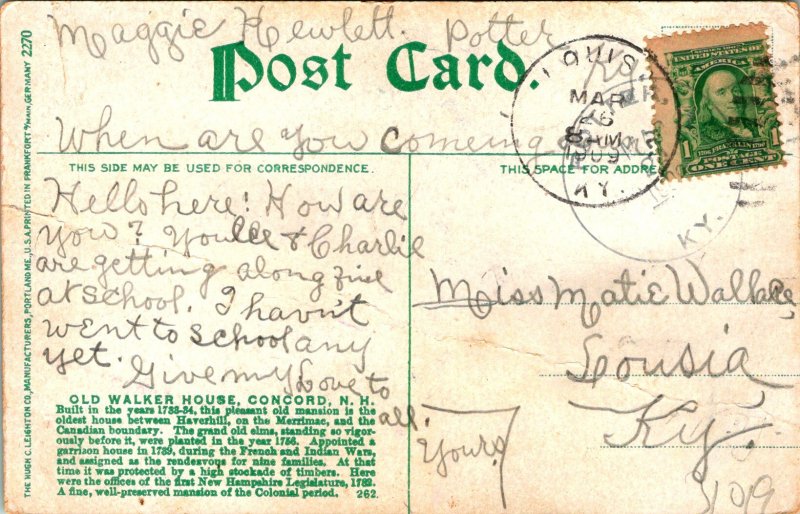 Maggie Hewlett. Potter
Post Card.
When are you comeing
THIS SIDE MAY BE USED FOR CORRESPONDENCE.
THIS SPACE FOR ADDRE
Hello here! How are
you? You & Charlie
are getting along fine
at school. I havn't
went to school any
yet.
Give my Love to
all.
Yours
OLD WALKER HOUSE, CONCORD, N. H.
Built in the years 1733-34, this pleasant old mansion is the
oldest house between Haverhill, on the Merrimac, and the
Canadian boundary. The grand old elms, standing so vigor-
ously before it, were planted in the year 1756. Appointed a
garrison house in 1739, during the French and Indian Wars,
and assigned as the rendezvous for nine families. At that
time it was protected by a high stockade of timbers. Here
were the offices of the first New Hampshire Legislature, 1782.
A fine, well-preserved mansion of the Colonial period. 262.
THE HUGH C. LEIGHTON CO., MANUFACTURERS, PORTLAND ME., U.S.A. PRINTED IN FRANKFORT o/MAIN, GERMANY 2270
LOUIS
MAR
6
AM
1909
KY.
KY.
UNITED STATES OF
AMERICA
FRANKLIN
POSTAGE
1 ONE CENT 1
Miss Matie Wallace
Lousia
Ky.